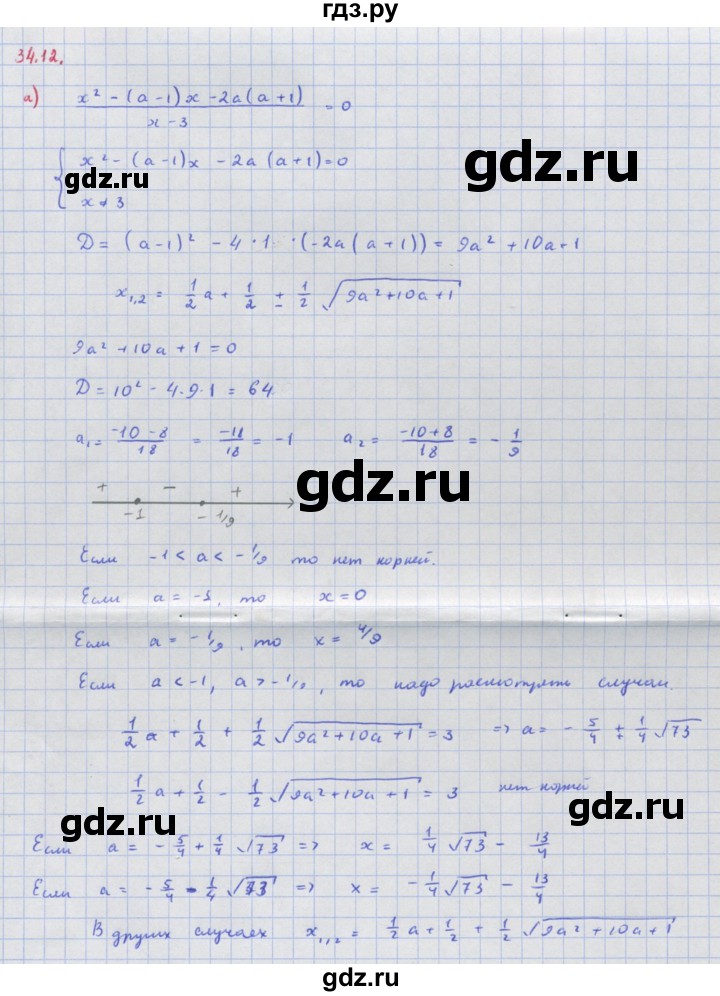 гдз.ру
34.12.
а) (x² - (a-1)x - 2a(a+1))/(x-3) = 0
{ x² - (a-1)x - 2a(a+1) = 0
x ≠ 3
gdz.ru
gdz.ru
D = (a-1)² - 4·1·(-2a(a+1)) = 9a² + 10a + 1
x₁,₂ = 1/2 a + 1/2 ± 1/2 √(9a²+10a+1)
gdz.ru
9a² + 10a + 1 = 0
D = 10² - 4·9·1 = 64
a₁ = (-10-8)/18 = -18/18 = -1 a₂ = (-10+8)/18 = -1/9
gdz.ru
+ - +
-1 -1/9
Если -1 < a < -1/9 то нет корней.
Если a = -1, то x = 0
gdz.ru
Если a = -1/9, то x = 4/9
Если a < -1, a > -1/9, то надо рассмотреть случаи.
1/2 a + 1/2 + 1/2 √(9a²+10a+1) = 3 => a = -5/4 ± 1/4 √73
gdz.ru
1/2 a + 1/2 - 1/2 √(9a²+10a+1) = 3 нет корней
gdz.ru
gdz.ru
Если a = -5/4 + 1/4 √73 => x = 1/4 √73 - 13/4
Если a = -5/4 - 1/4 √73 => x = -1/4 √73 - 13/4
В других случаях x₁,₂ = 1/2 a + 1/2 + 1/2 √(9a²+10a+1)
gdz.ru
гдз.ру